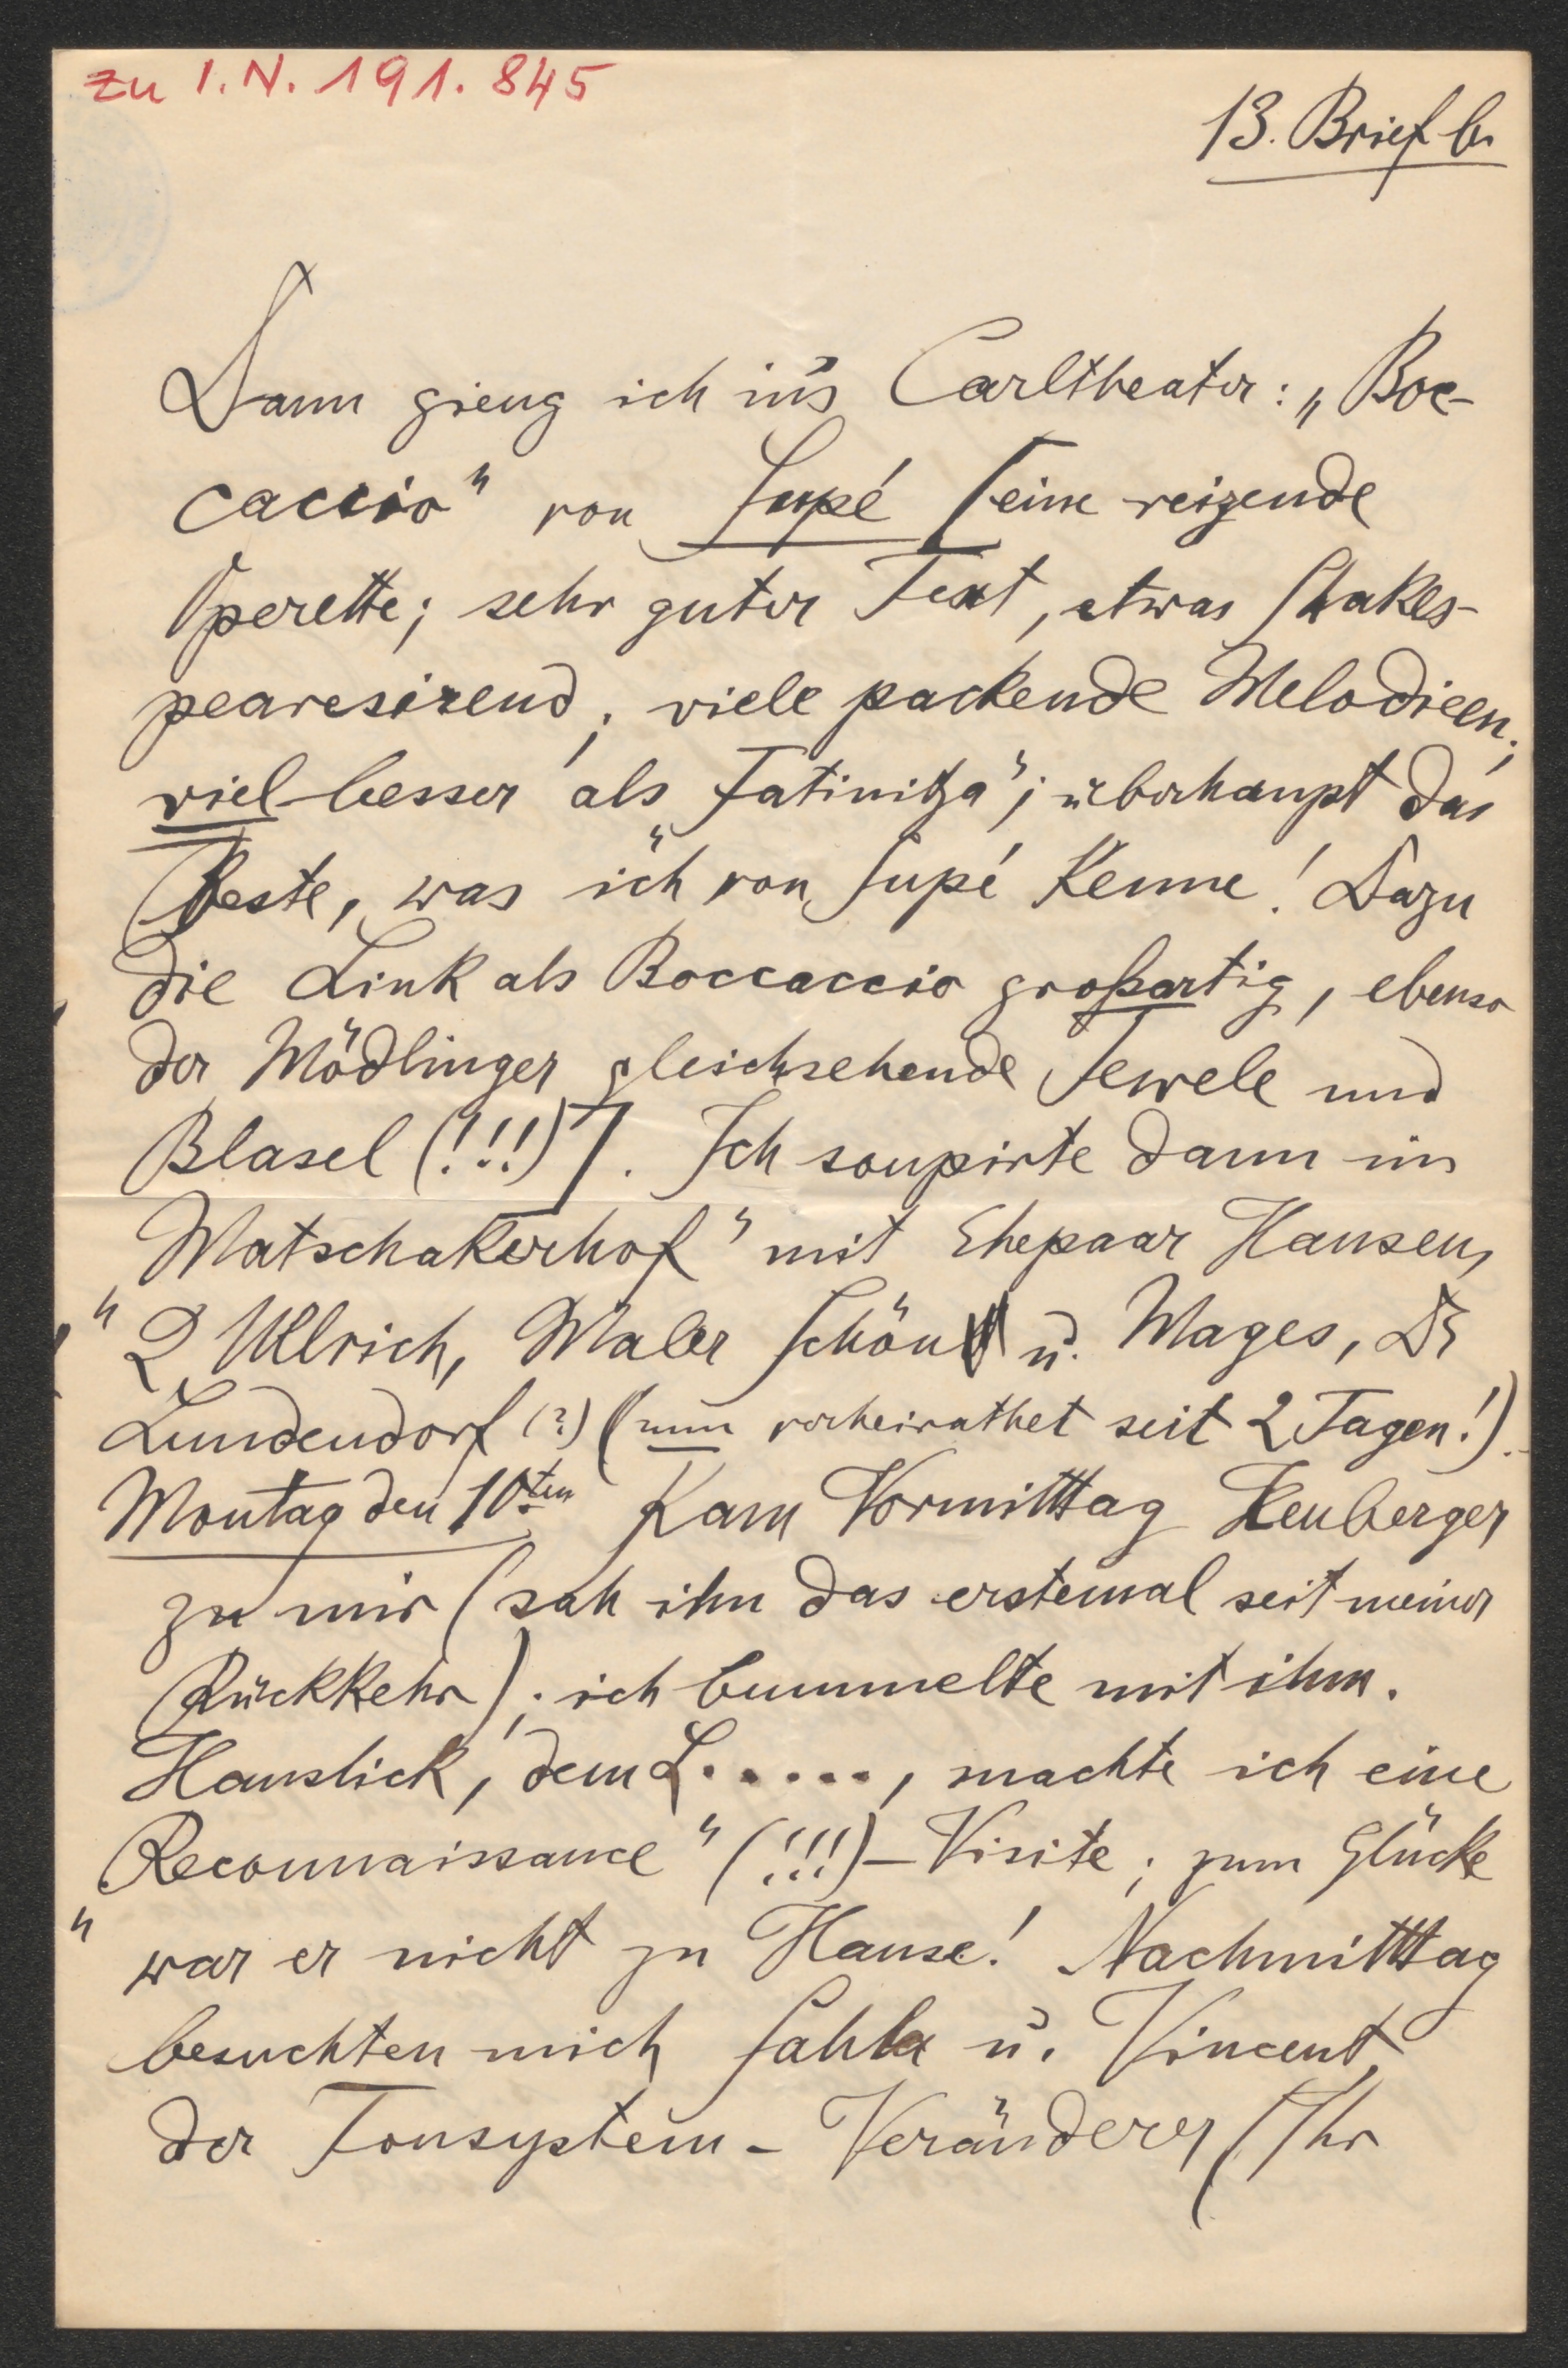 zu I.N. 191.845
13. Brief b.
Dann gieng ich in's Carltheater: „Boc-
caccio" von Supé [eine reizende
Operette; sehr guter Text, etwas Shakes-
pearesirend; viele packende Melodieen;
viel besser als „Fatinitza"; überhaupt das
Beste, was ich von Supé kenne! Dazu
die Link als Boccaccio großartig, ebenso
der Mödlinger gleichsehende Tewele und
Blasel (!!!)]. Ich soupirte dann im
„Matschakerhof" mit Ehepaar Hansen,
2 Ullrich, Maler Schön u. Mages, Dr
Lundendorf (?) (nun verheirathet seit 2 Tagen!).
Montag den 10ten kam Vormitttag Heuberger
zu mir (sah ihn das erstemal seit meiner
Rückkehr); ich bummelte mit ihm.
Hanslick, dem L....., machte ich eine
„Reconnaissance" (!!!)-Visite; zum Glücke
war er nicht zu Hause! Nachmitttag
besuchten mich Sahla u. Vincent,
der Tonsystem-Veränderer (Ihr